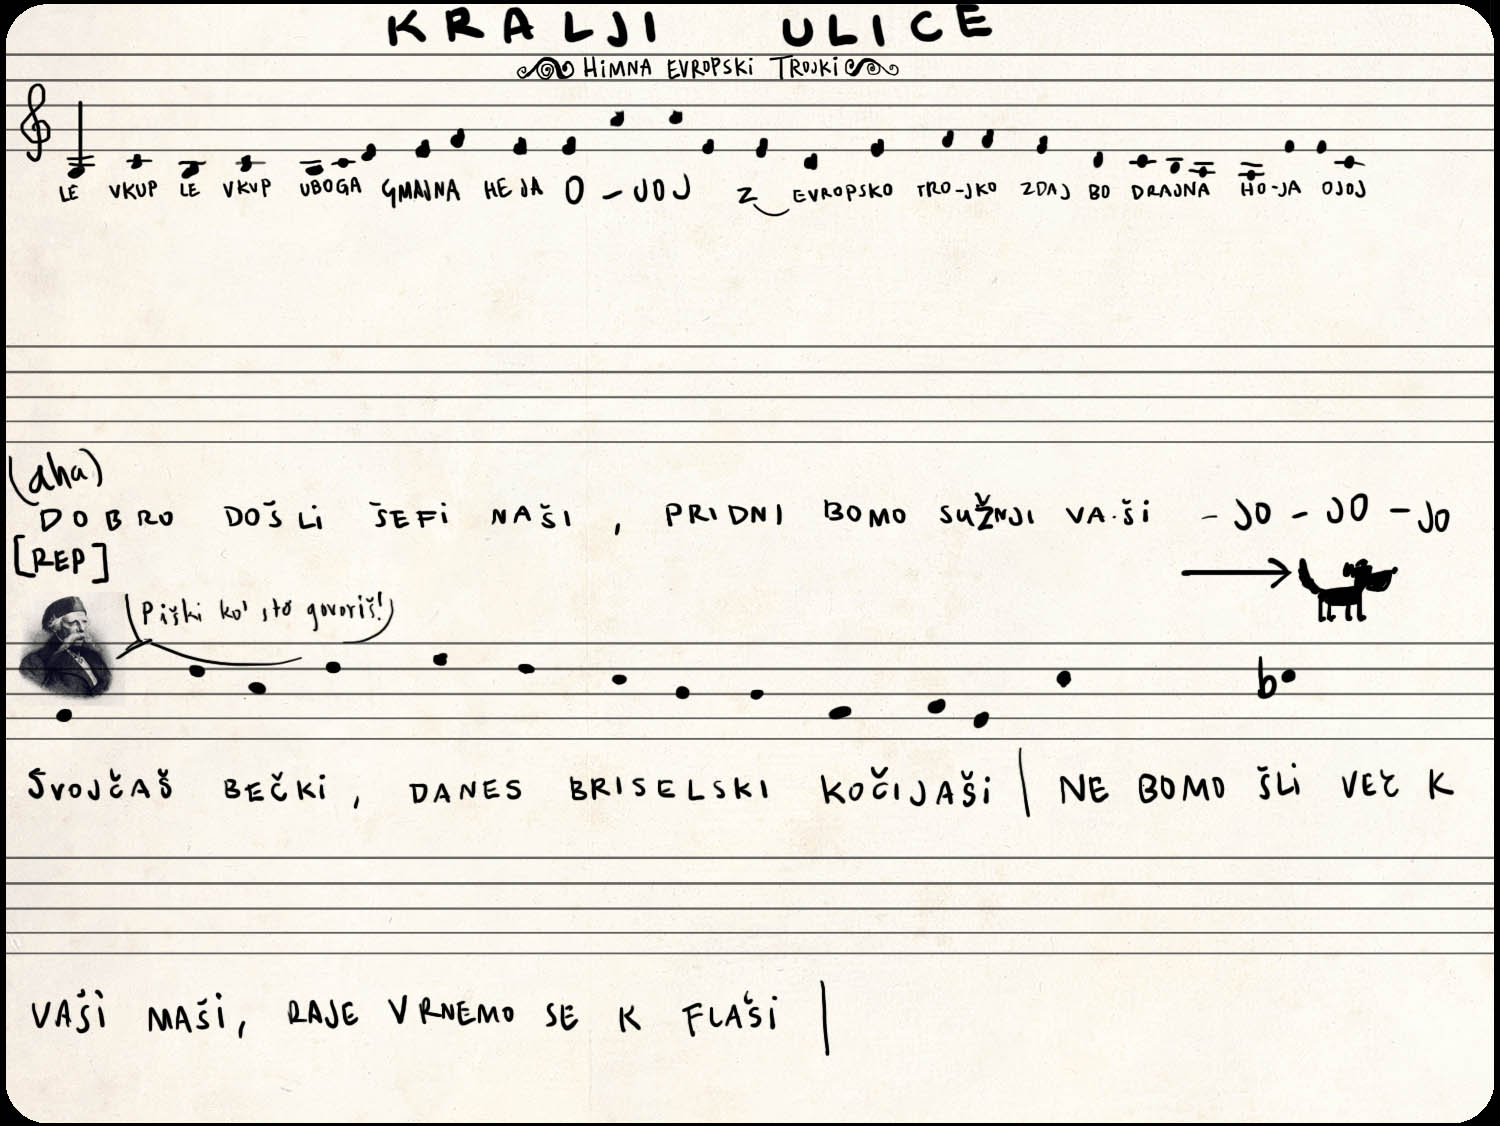 KRALJI ULICE
HIMNA EVROPSKI TROJKI
LE VKUP LE VKUP UBOGA GMAJNA HEJA O - JOJ Z EVROPSKO TRO-JKO ZDAJ BO DRAJNA HO-JA OJOJ
(aha)
DOBRO DOŠLI ŠEFI NAŠI, PRIDNI BOMO SUŽNJI VAŠI - JO - JO - JO
[REP]
Piški ko' što govoriš!
SVOJČAŠ BEČKI, DANES BRISELSKI KOČIJAŠI | NE BOMO ŠLI VEČ K
VAŠI MAŠI, RAJE VRNEMO SE K FLAŠI |